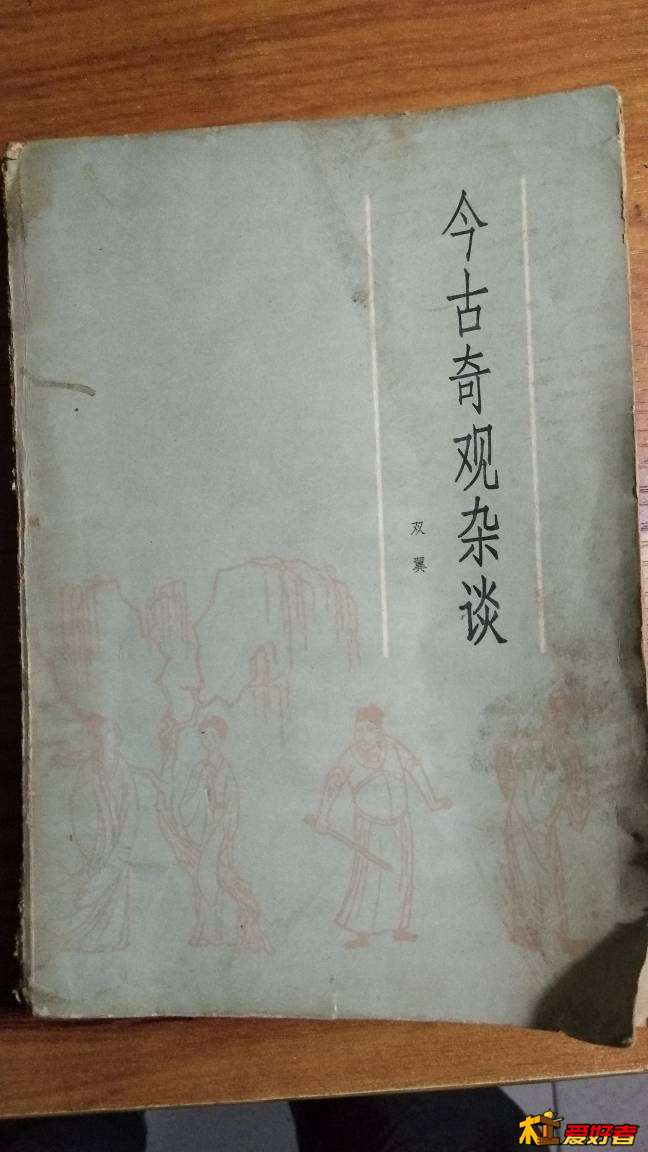 今古奇观杂谈
双翼
杜爱好者